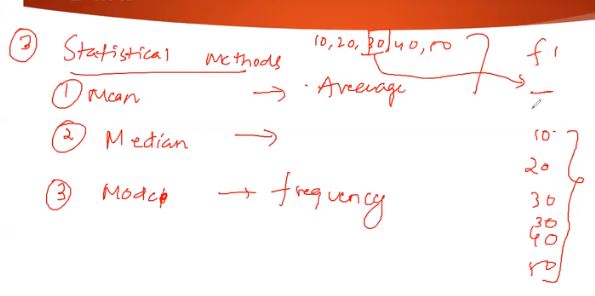 ③ Statistical Methods
10, 20, 30, 40, 50
① Mean → Average
② Median →
③ Mode → frequency
f1
10
20
30
30
40
50